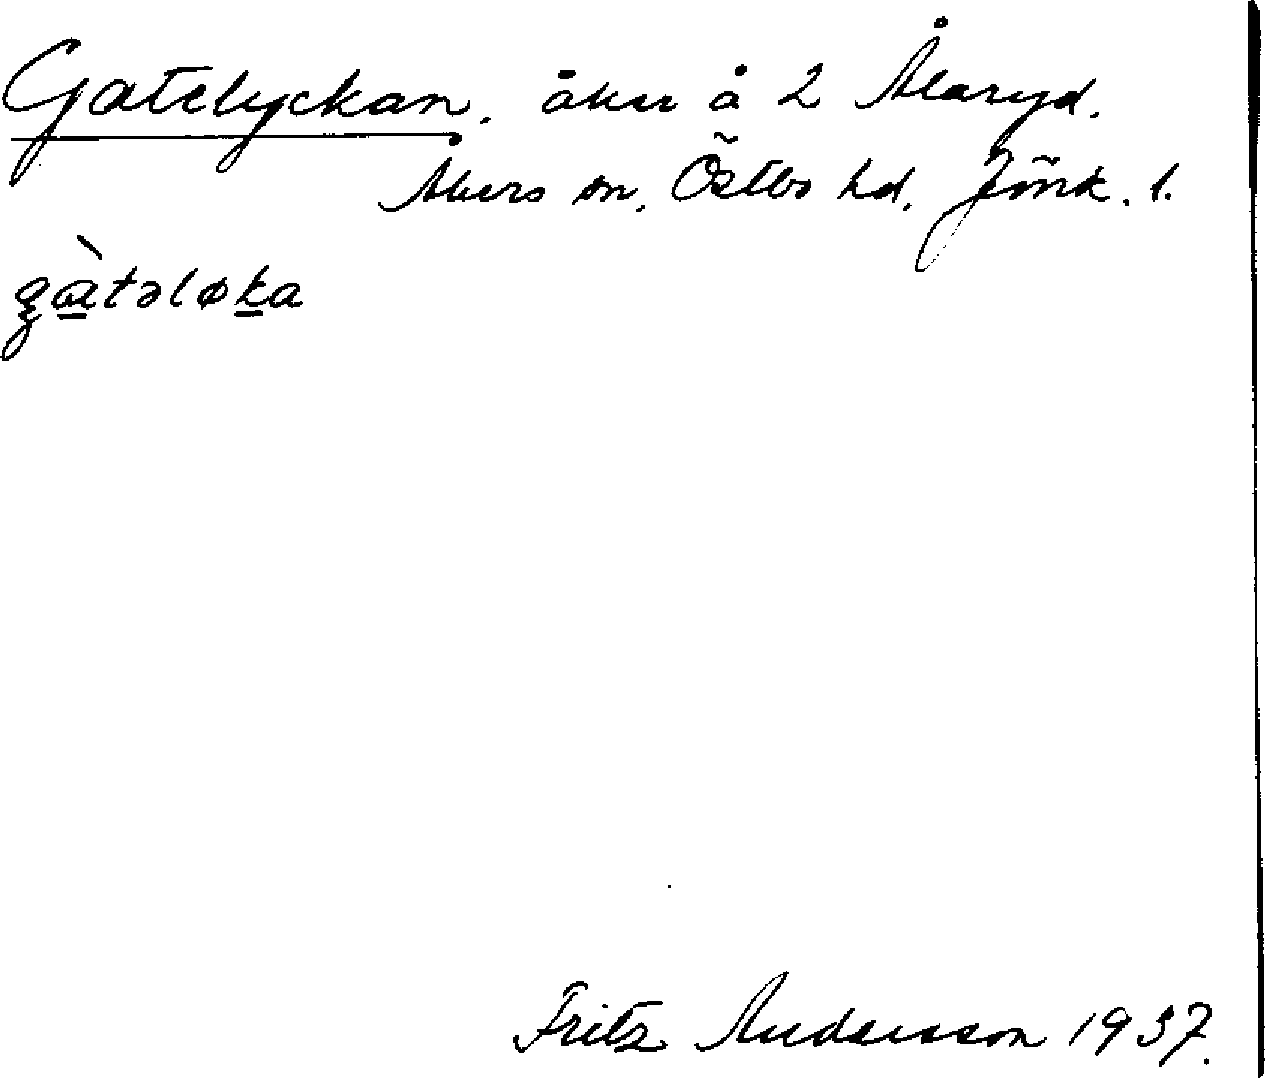 Gatelyckan. åker å 2 Ålaryd.
Åkers sn. Östbo hd. Jönk. l.
gàtəløka
Fritz Andersson 1937.